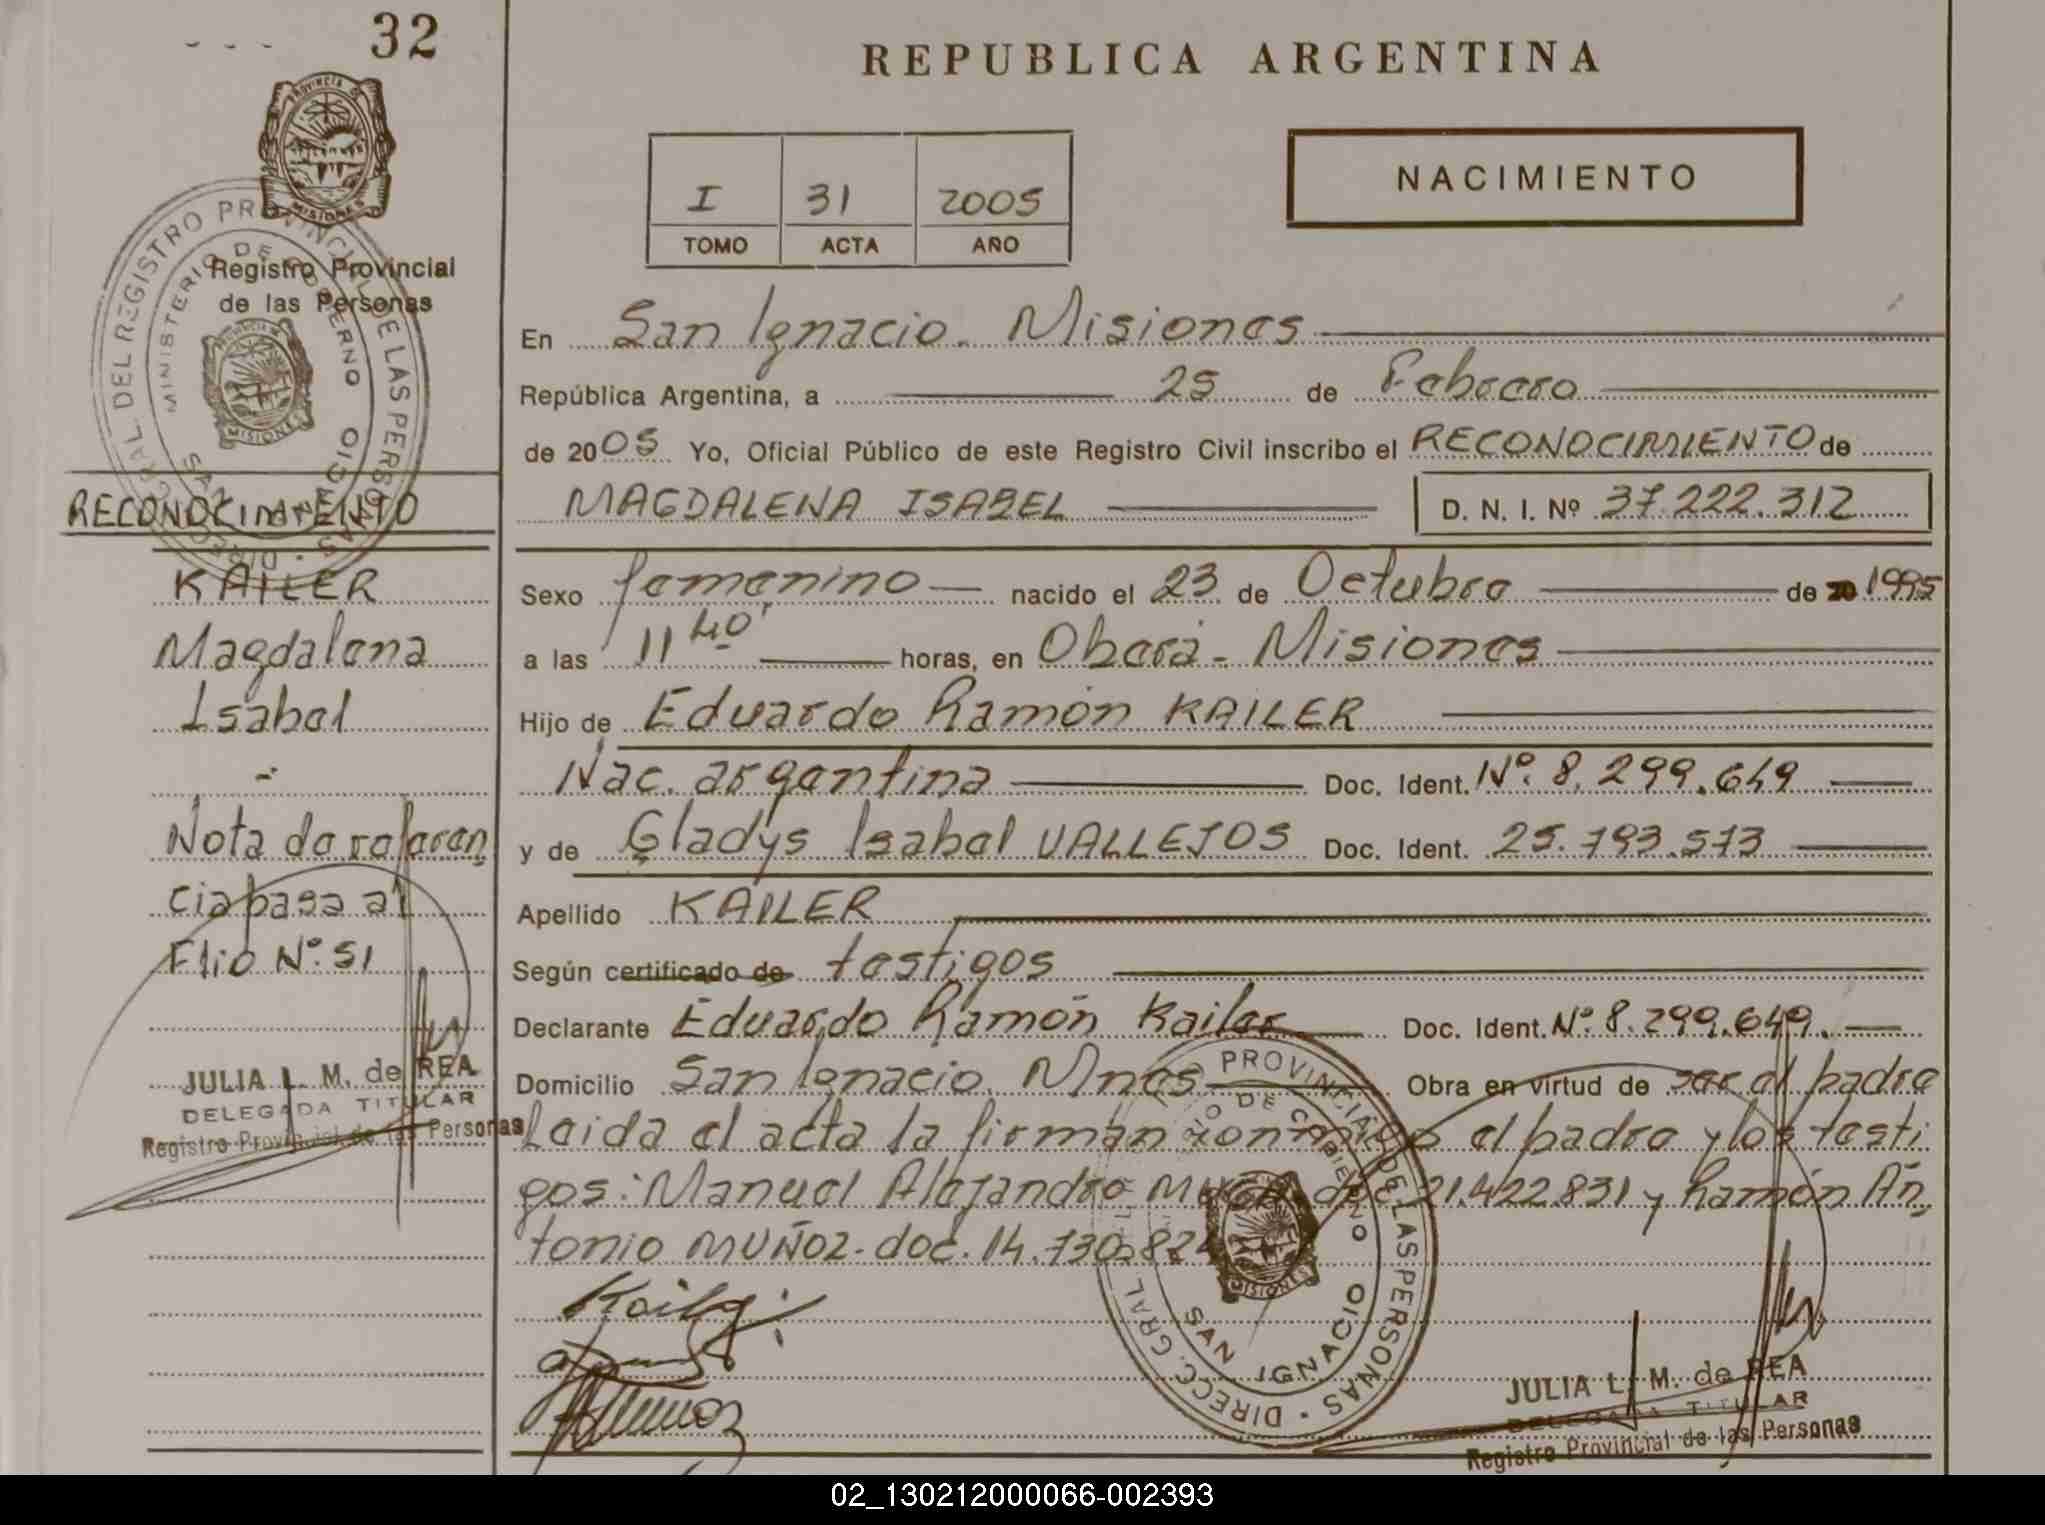 32
PROVINCIA DE
MISIONES
Registro Provincial
de las Personas
DIRECC. GRAL. DEL REGISTRO PROVINCIAL DE LAS PERSONAS
MINISTERIO DE GOBIERNO
SAN IGNACIO
MISIONES
RECONOCIMIENTO
KAILER
Magdalena
Isabel
Nota de referen
cia pasa al
Flio Nº 51
JULIA L. M. de REA
DELEGADA TITULAR
Registro Provincial de las Personas
REPUBLICA ARGENTINA
I 31 2005
TOMO ACTA AÑO
NACIMIENTO
En San Ignacio. Misiones
República Argentina, a 25 de Febrero
de 2005 Yo, Oficial Público de este Registro Civil inscribo el RECONOCIMIENTO de
MAGDALENA ISABEL D. N. I. Nº 37.222.312
Sexo femenino nacido el 23 de Octubre de 20 1995
a las 11 40' horas, en Oberá - Misiones
Hijo de Eduardo Ramón KAILER
Nac. argentina Doc. Ident. Nº 8.299.649
y de Gladys Isabel VALLEJOS Doc. Ident. 25.793.573
Apellido KAILER
Según certificado de testigos
Declarante Eduardo Ramón Kailer Doc. Ident. Nº 8.299.649.
Domicilio San Ignacio. Mnes Obra en virtud de ser el padre
Leida el acta la firman conmigo el padre y los testi
gos: Manuel Alejandro doc 21.422.831 y Ramón An
tonio MUÑOZ - doc. 14.730.824
Kailer
Munoz
DIRECC. GRAL. PROVINCIAL DE LAS PERSONAS
MINISTERIO DE GOBIERNO
SAN IGNACIO
MISIONES
JULIA L. M. de REA
DELEGADA TITULAR
Registro Provincial de las Personas
02_130212000066-002393